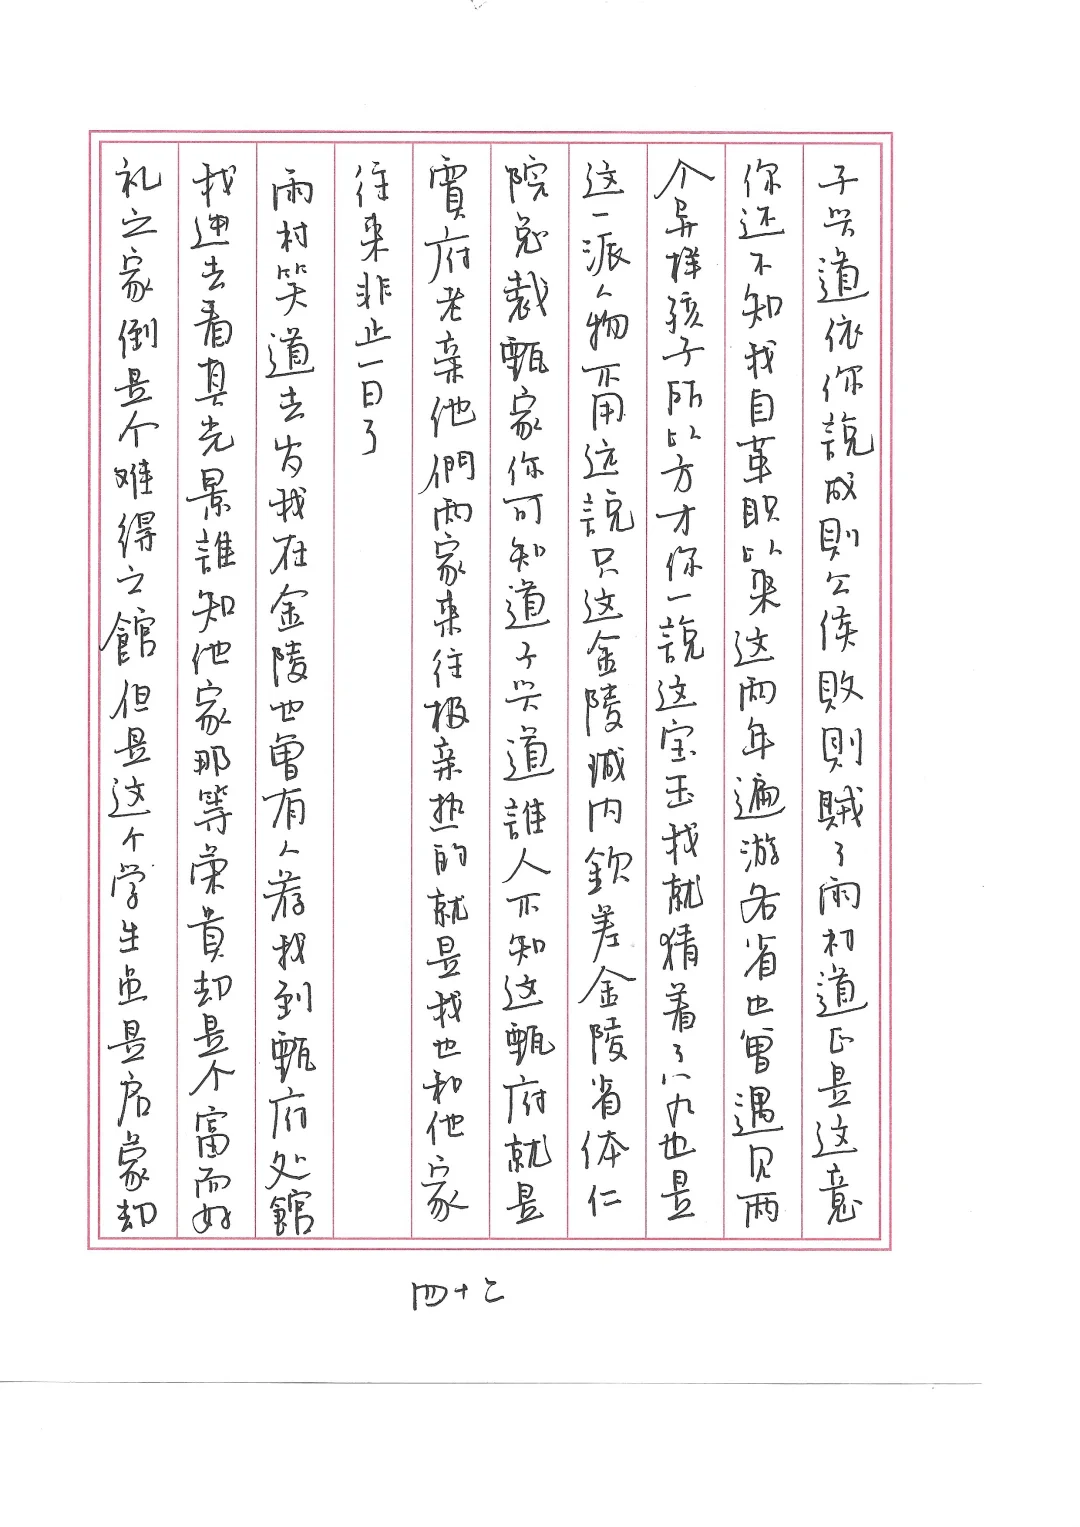 子兴道依你説成則公侯敗則賊了雨村道正是这意
你还不知我自革职以来这两年遍游各省也曾遇见两
个异样孩子所以方才你一説这宝玉我就猜着了八九也是
这一派人物不用远説只这金陵城内欽差金陵省体仁
院总裁甄家你可知道子兴道誰人不知这甄府就是
賈府老亲他們两家来往极亲热的就是我也和他家
往来非止一日了
雨村笑道去岁我在金陵也曾有人荐我到甄府处館
我进去看其光景誰知他家那等荣貴却是个富而好
礼之家倒是个难得之館但是这个学生虽是启蒙却
四十二